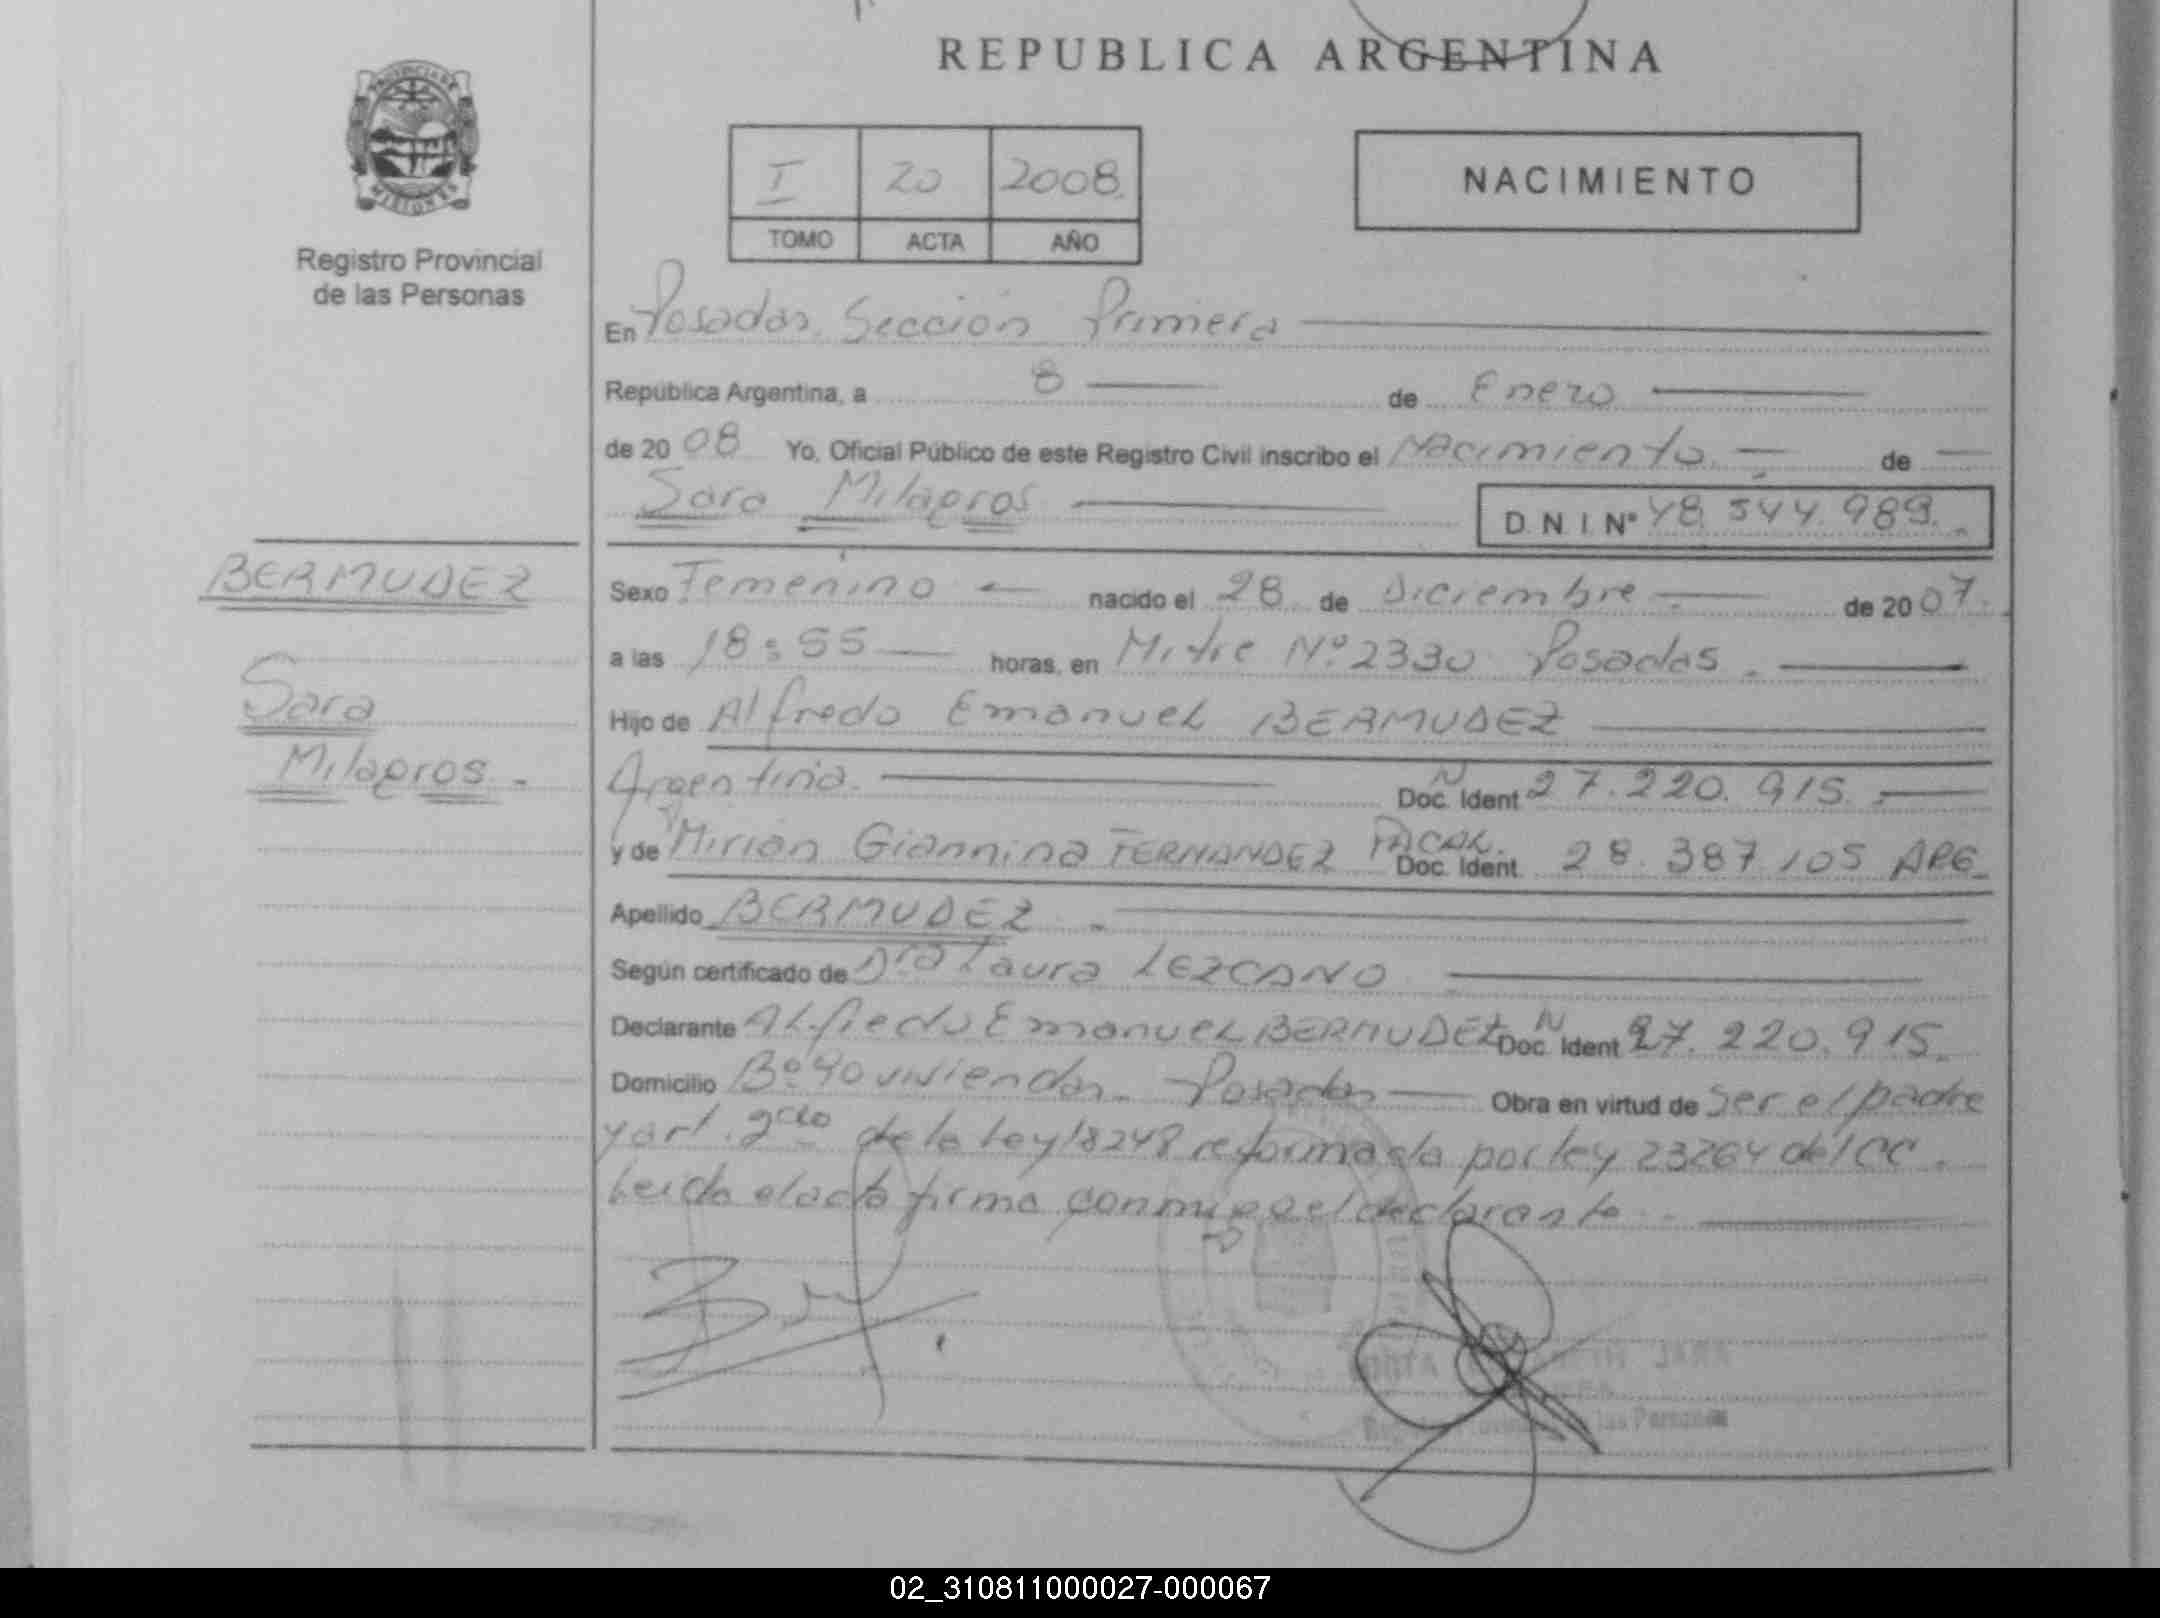 REPUBLICA ARGENTINA
PROVINCIA DE
MISIONES
Registro Provincial
de las Personas
I 20 2008.
TOMO ACTA AÑO
NACIMIENTO
En Posadas Sección Primera
República Argentina, a 8 de Enero
de 20 08 Yo, Oficial Público de este Registro Civil inscribo el Nacimiento de
Sara Milagros
D. N. I. N° 48.544.989.
BERMUDEZ
Sara
Milagros.
Sexo Femenino nacido el 28 de Diciembre de 20 07.
a las 18:55 horas, en Mitre N° 2330 Posadas.
Hijo de Alfredo Emanuel BERMUDEZ
Argentina. Doc. Ident N 27.220.915.
y de Mirian Giannina FERNANDEZ Doc. Ident. 28.387.105 ARG.
Apellido BERMUDEZ.
Según certificado de Dra Laura LEZCANO
Declarante Alfredo Emanuel BERMUDEZ Doc. Ident N 27.220.915.
Domicilio B° 90 viviendas. Posadas Obra en virtud de ser el padre
y art. 2do de la ley 18248 reformada por ley 23264 del CC.
Leida el acta firma conmigo el declarante.
JARA
las Personas
02_310811000027-000067